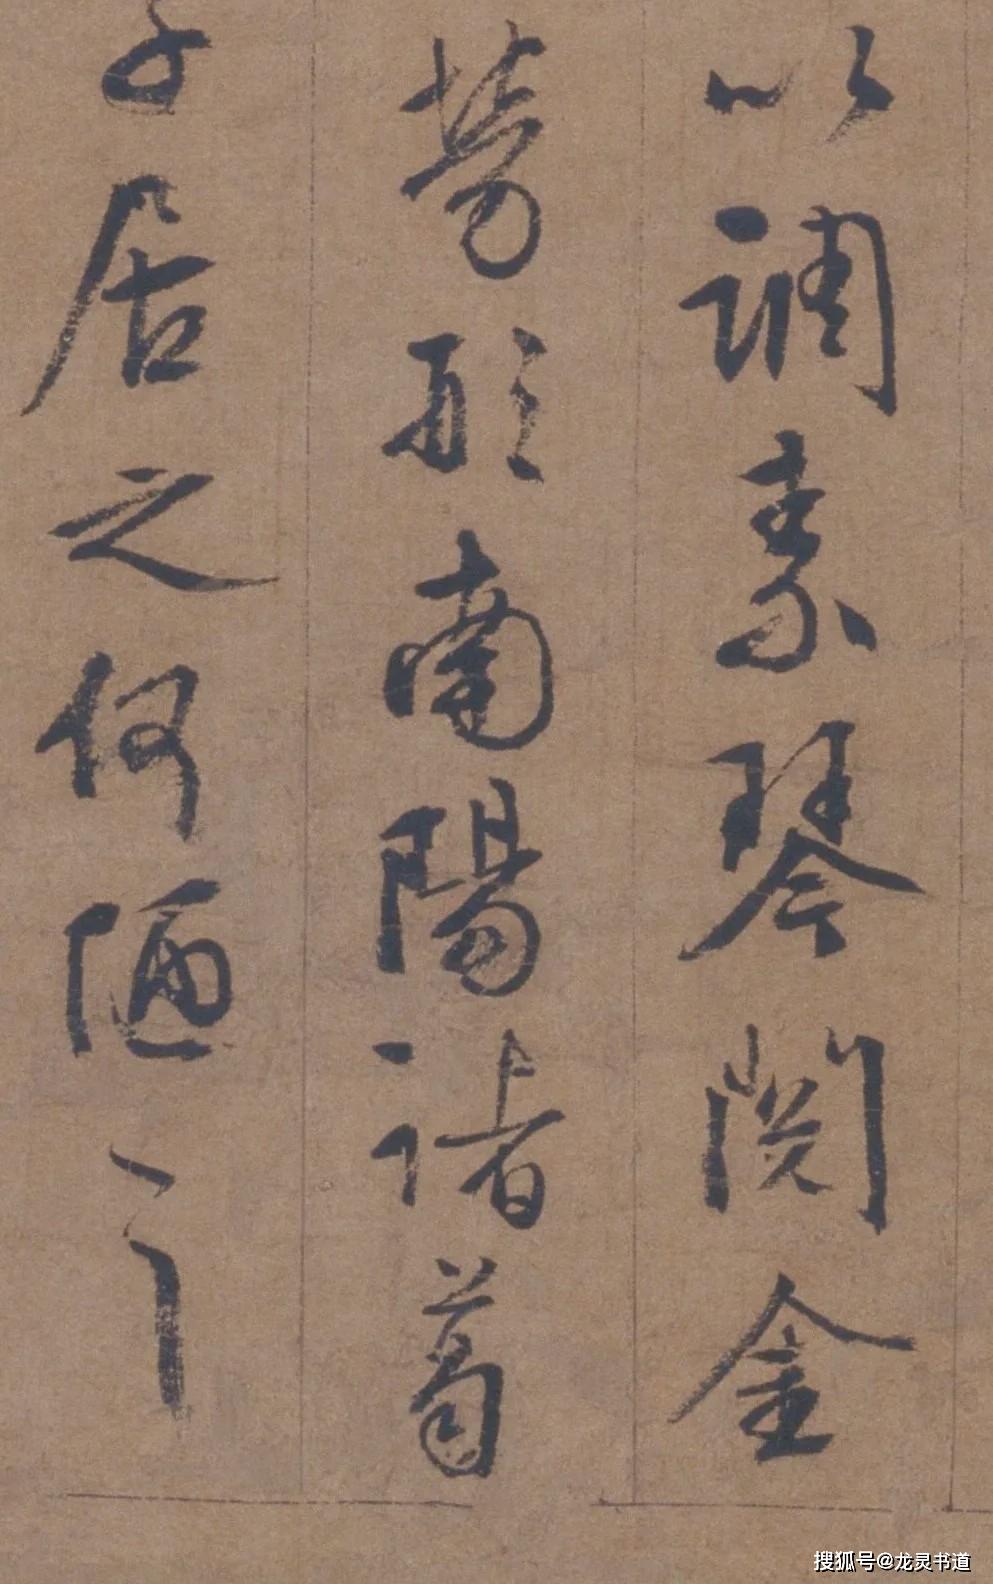 以調素琴閱金
勞形南陽諸葛
子居之何陋
搜狐号@龙灵书道